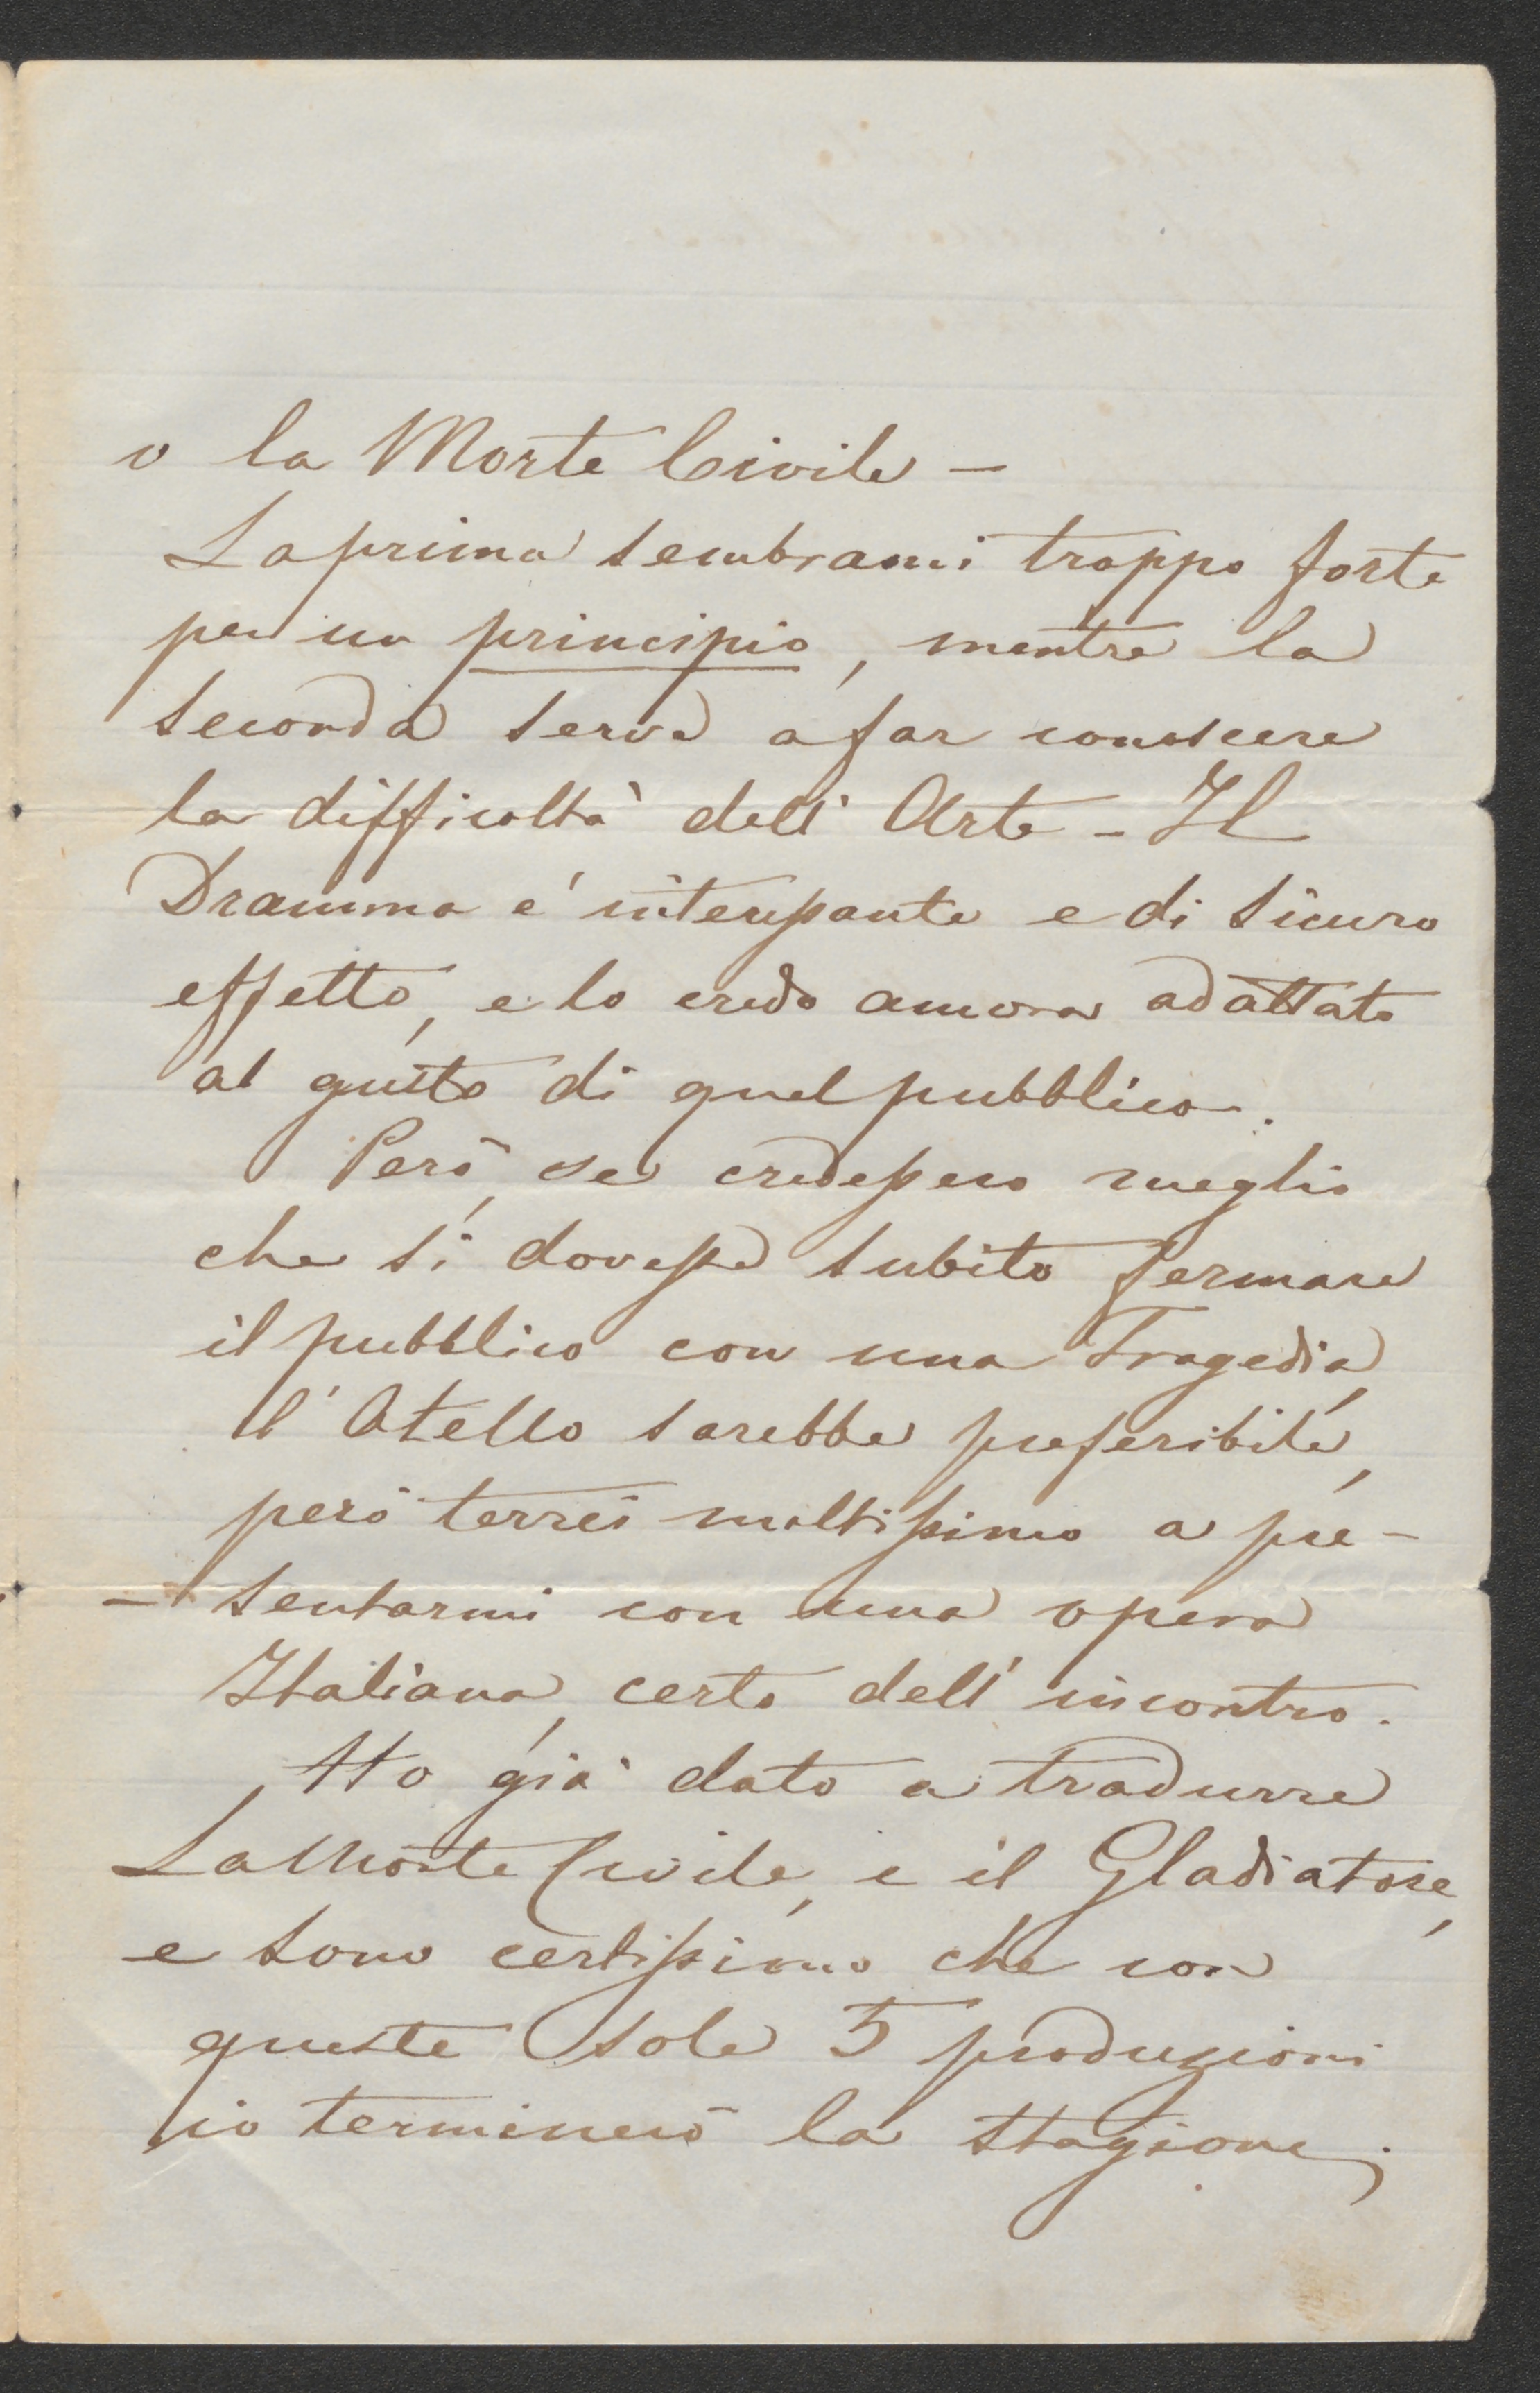 o la Morte Civile –
La prima sembrami troppo forte
per un principio, mentre la
seconda serve a far conoscere
la difficoltà dell' Arte – Il
Dramma é interessante e di sicuro
effetto, e lo credo ancora adattato
al gusto di quel pubblico.
Però, se credessero meglio
che si dovesse subito fermare
il pubblico con una Tragedia,
l' Otello sarebbe preferibile,
però terrei moltissimo a pre-
- sentarmi con una opera
Italiana, certo dell' incontro.
Ho già dato a tradurre
La Morte Civile, e il Gladiatore,
e sono certissimo che con
queste sole 5 produzioni
io terminerò la stagione;